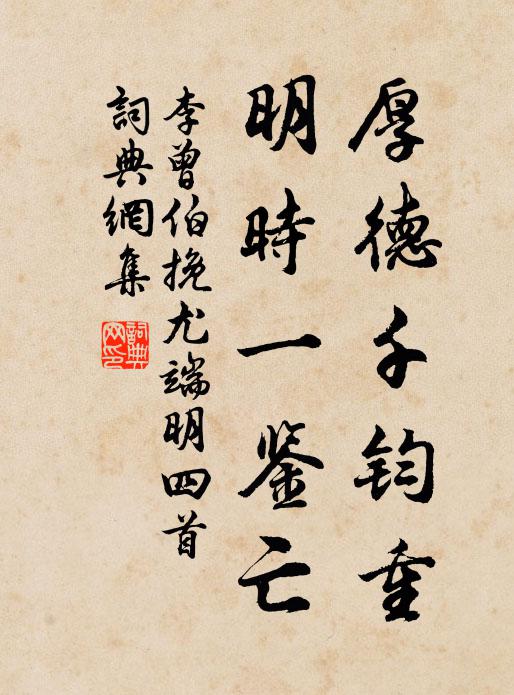 厚德千鈞重
明時一鉴亡
李曾伯挽尤端明四首
詞典網集
詞典網印